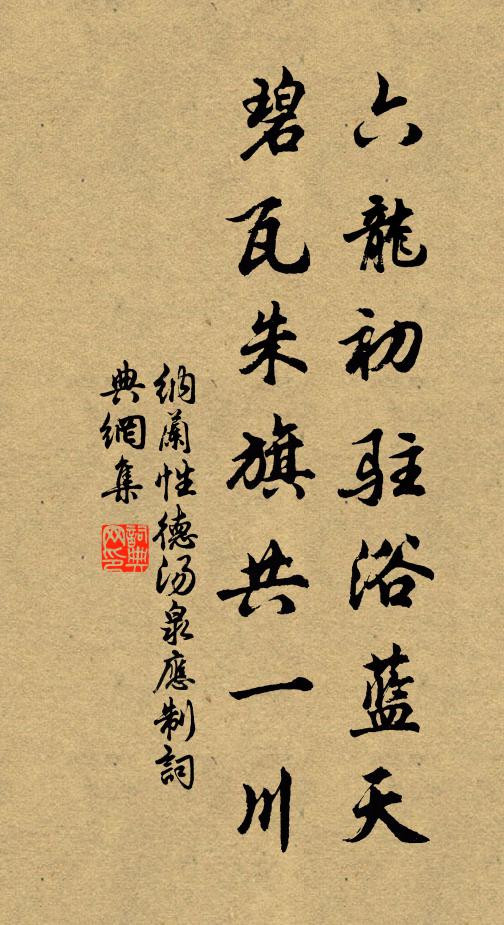 六龍初駐浴藍天
碧瓦朱旗共一川
納蘭性德湯泉應制詞
典網集
詞典網印